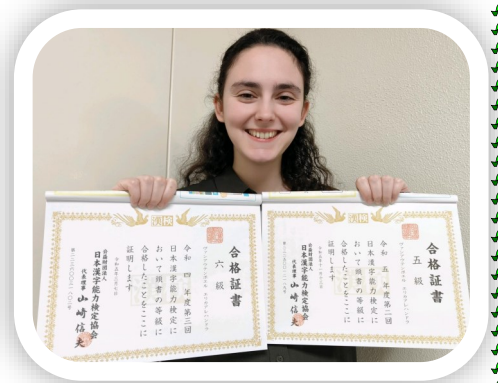 漢検
合格証書
六級
令和 四年度第三回
日本漢字能力検定に
おいて頭書の等級に
合格したことをここに
証明します
公益財団法人
日本漢字能力検定協会
代表理事 山崎信夫
漢検
合格証書
五級
令和 五年度第二回
日本漢字能力検定に
おいて頭書の等級に
合格したことをここに
証明します
公益財団法人
日本漢字能力検定協会
代表理事 山崎信夫